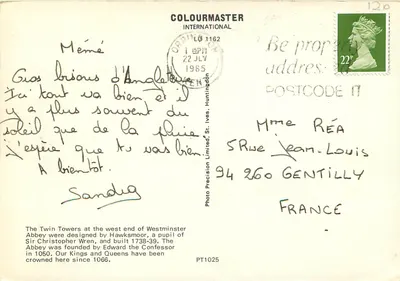 COLOURMASTER
INTERNATIONAL
LO 1162
120
1 8PM
22 JLY
1985
KENT
Be proper
address
POSTCODE IT
22P
Mémé
Gros bisous d'Angleterre
Ici tout va bien et il
y a plus souvent du
soleil que de la pluie
j'espère que tu vas bien
A bientôt.
Sandra
Photo Precision Limited, St. Ives, Huntingdon
Mme RÉA
5 Rue Jean-Louis
94 260 GENTILLY
FRANCE
The Twin Towers at the west end of Westminster
Abbey were designed by Hawksmoor, a pupil of
Sir Christopher Wren, and built 1738-39. The
Abbey was founded by Edward the Confessor
in 1050. Our Kings and Queens have been
crowned here since 1066.
PT1025